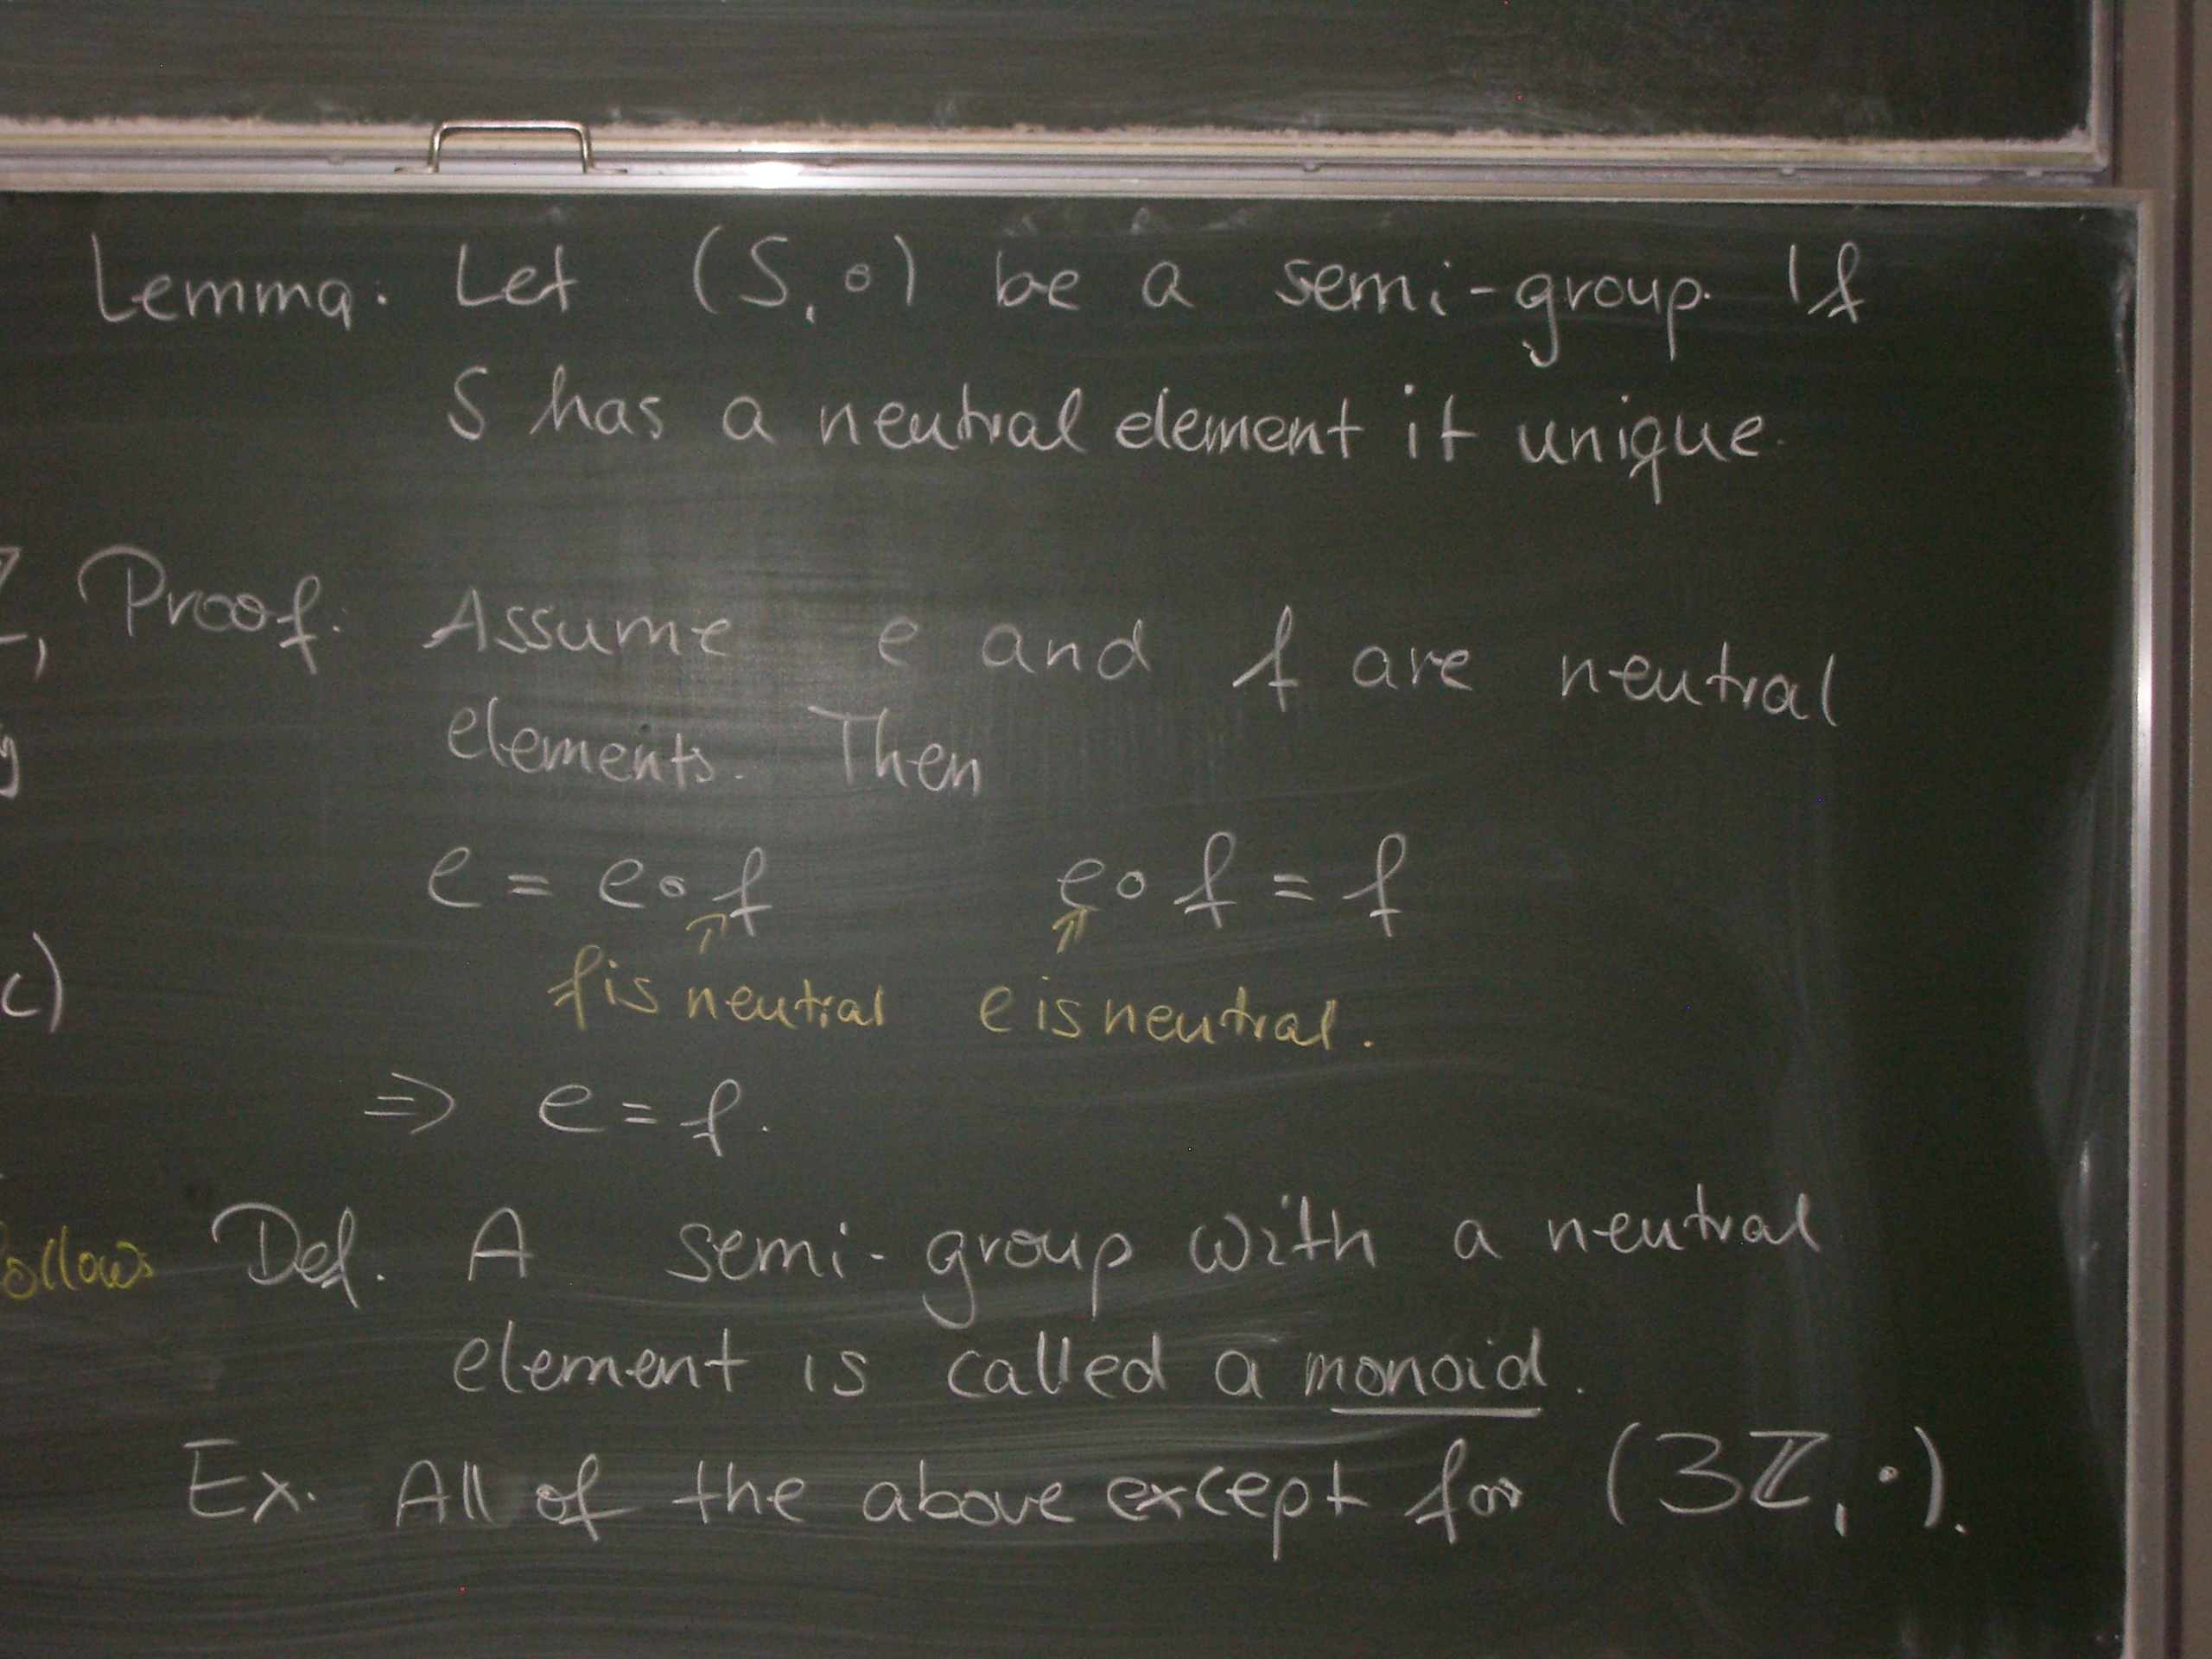 Lemma. Let (S, ∘) be a semi-group. If
S has a neutral element it unique.
Proof: Assume e and f are neutral
elements. Then
e = e∘f e∘f = f
f is neutral e is neutral.
⇒ e = f.
ollows
Def. A semi-group with a neutral
element is called a monoid.
Ex. All of the above except for (3ℤ, ·).
c)